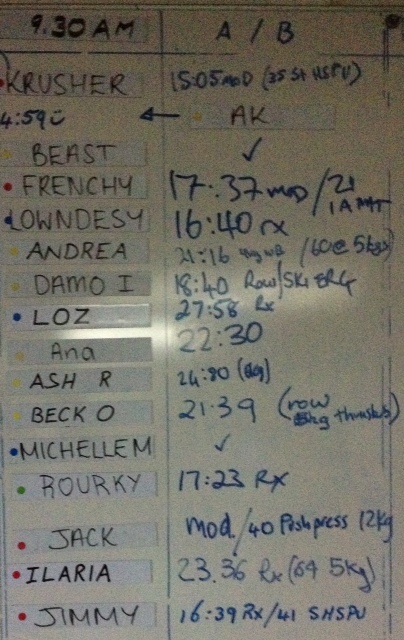 9.30 AM A / B
KRUSHER 15:05 MOD (25 St HSPU)
4:59 ← AK
BEAST ✓
FRENCHY 17:37 mod / 21
LOWNDESY 16:40 rx
ANDREA 21:16 /60@ 5kgs)
DAMO I 18:40 Row/Ski ERG
LOZ 27:58 Rx
Ana 22:30
ASH R 24:80
BECK O 21:39 (row
kg thrusters)
MICHELLE M ✓
ROURKY 17:23 RX
JACK mod./40 Push press 12kg
ILARIA 23.36 Rx (64 5kg)
JIMMY 16:39 RX/41 SHSPU